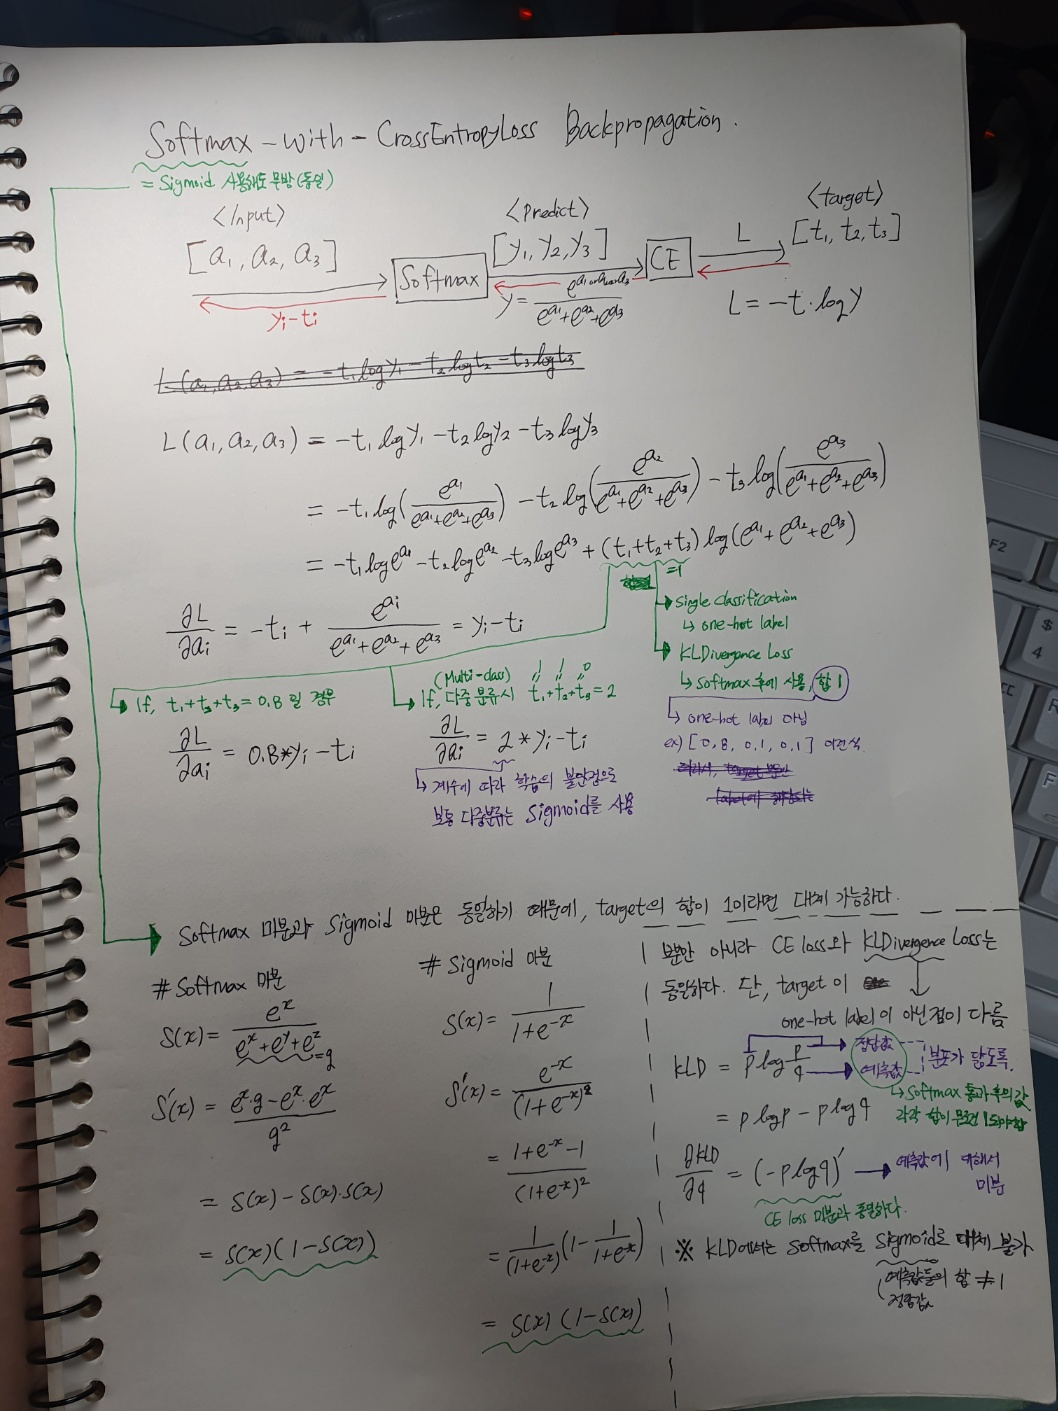 Softmax - with - CrossEntropyLoss Backpropagation.
= Sigmoid 사용해도 무방(동일)
<Input>
<Predict>
<Target>
[a₁, a₂, a₃]
Softmax
[y₁, y₂, y₃]
CE
L
[t₁, t₂, t₃]
yᵢ-tᵢ
y = e^(a₁ or a₂ or a₃) / (e^a₁+e^a₂+e^a₃)
L = -t·log y
L(a₁, a₂, a₃) = -t₁ log y₁ - t₂ log t₂ - t₃ log t₃
L(a₁, a₂, a₃) = -t₁ log y₁ - t₂ log y₂ - t₃ log y₃
= -t₁ log(e^a₁ / (e^a₁+e^a₂+e^a₃)) - t₂ log(e^a₂ / (e^a₁+e^a₂+e^a₃)) - t₃ log(e^a₃ / (e^a₁+e^a₂+e^a₃))
= -t₁ log e^a₁ - t₂ log e^a₂ - t₃ log e^a₃ + (t₁+t₂+t₃) log(e^a₁+e^a₂+e^a₃)
=1
Single classification
↳ one-hot label
KLDivergence Loss
↳ Softmax 후에 사용, 합 1
↳ one-hot label 아님
ex) [0.8, 0.1, 0.1] 이런식
∂L/∂aᵢ = -tᵢ + e^aᵢ / (e^a₁+e^a₂+e^a₃) = yᵢ-tᵢ
If, t₁+t₂+t₃ = 0.8 일 경우
∂L/∂aᵢ = 0.8*yᵢ-tᵢ
(Multi-class)
1 1 0
If, 다중 분류시 t₁+t₂+t₃=2
∂L/∂aᵢ = 2*yᵢ-tᵢ
↳ 계수에 따라 학습의 불안정으로
보통 다중분류는 Sigmoid를 사용
Softmax 미분과 Sigmoid 미분은 동일하기 때문에, target의 합이 1이라면 대체 가능하다.
# Softmax 미분
S(x) = e^x / (e^x+e^y+e^z)
=g
S'(x) = (e^x·g - e^x·e^x) / g²
= S(x) - S(x)·S(x)
= S(x)(1-S(x))
# Sigmoid 미분
S(x) = 1 / (1+e^-x)
S'(x) = e^-x / (1+e^-x)²
= (1+e^-x-1) / (1+e^-x)²
= 1/(1+e^-x) (1 - 1/(1+e^-x))
= S(x) (1-S(x))
뿐만 아니라 CE loss와 KLDivergence Loss는
동일하다. 단, target이
one-hot label이 아닌점이 다름
KLD = p log p/q
정답값
예측값
분포가 닮도록.
↳ Softmax 통과 후의 값
각각 합이 무조건 1 되야함
= p log p - p log q
∂KLD/∂q = (-p log q)' → 예측값에 대해서
미분
CE loss 미분과 동일하다.
※ KLD에서는 Softmax를 Sigmoid로 대체 불가
(예측값들의 합 ≠ 1
정답값